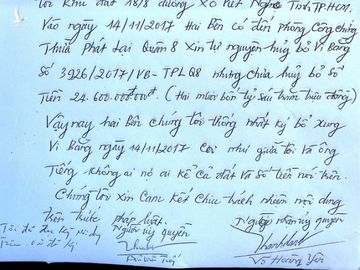 tới khu đất 18/8 đường Xô Viết Nghệ Tĩnh TP.HCM.
Vào ngày 14/11/2017 Hai Bên có đến phòng công chứng
Thừa Phát Lại Quận 8 xin tự nguyện huỷ bỏ Vi Bằng
Số 3926/2017/VB-TPLQ8 nhưng chưa huỷ bỏ số
Tiền 24.600.000 (Hai mươi bốn tỷ sáu trăm triệu đồng)
Vậy nay hai Bên chúng tôi thống nhất ký bổ xung
Vi Bằng ngày 14/11/2017 coi như giữa tôi và ông
Tiếng không ai nợ ai kể cả đất và số tiền nói trên.
Chúng tôi xin Cam kết chịu trách nhiệm nội dung
trên trước pháp luật.
Người uỷ quyền
Người nhận uỷ quyền
Võ Hoàng Yên